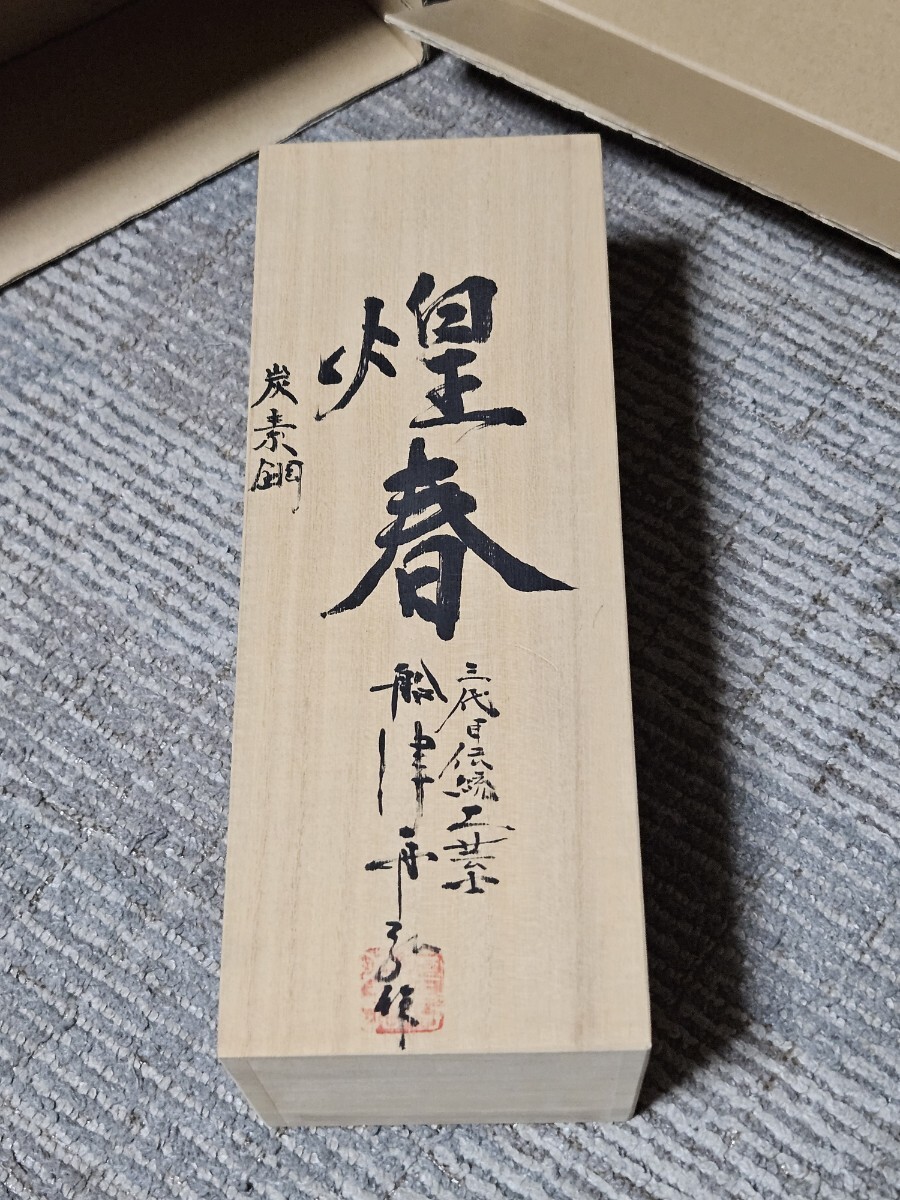 煌春
炭素鋼
三代目伝統工芸士
船津舟弘作